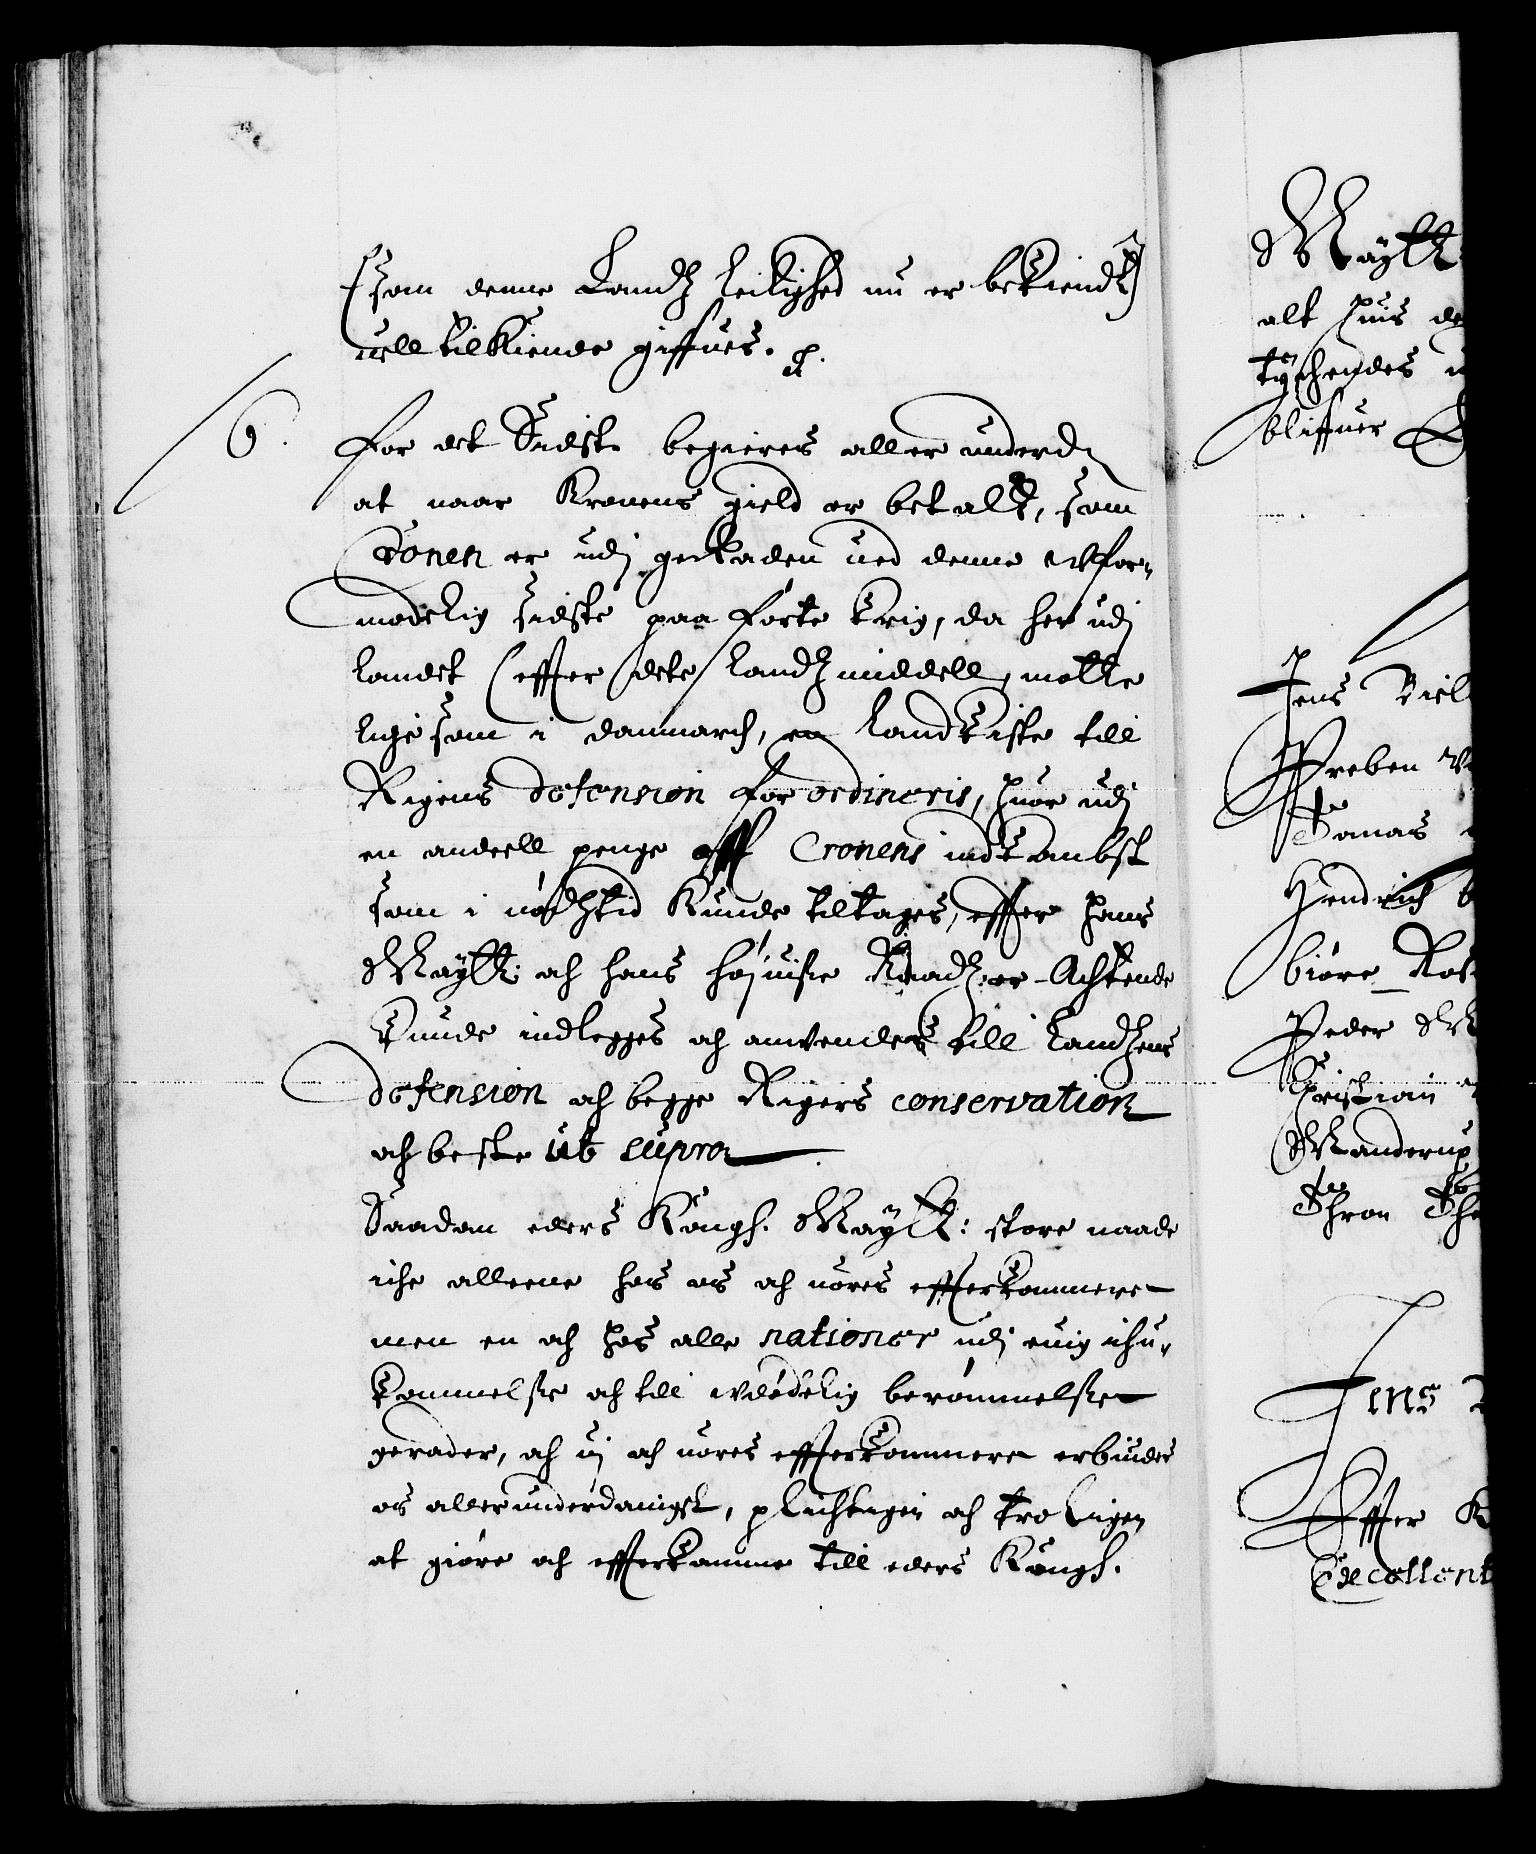 (som denne Landz leilighed nu er bekiendt)
vell tilkiende giffues. etc.
6. For det Sidste begieres aller underd:
at naar Kronens gield er betalt, som
Cronen er udj geraaden ved denne Wfor-
modelig sidste paa förte krig, da her udj
landet (effter dets landz middell) motte
lige som i Danmarch, en landkiste till
Rigens defension forordineris, huor udj
en andeell penge aff Cronens indkombst
som i nödhtid kunde tiltages, effter hans
Maytt: och hans höjuise Raadz er-Achtende
kunde indlegges och anvendes till landzens
defension och begge Rigers conservation
och beste ut supra
Saadan eders Kongl. Maytt: store naade
iche alleene hos os och vores effterkommere
men en och hos alle nationer udj euig ihu-
kommelse och till wdödelig berömmelse
gerader, och vj och vores effterkommere erbinder
os allerunderdanigst, plichtigen och troligen
at giöre och effterkomme till eders Kongl.
Maytt
alt huis
bliffuer
Jens Biel
Preben
Tomas
Hendrich
biöre Ros
Peder
Christian
Manderup
Jens
Effter
Excellent